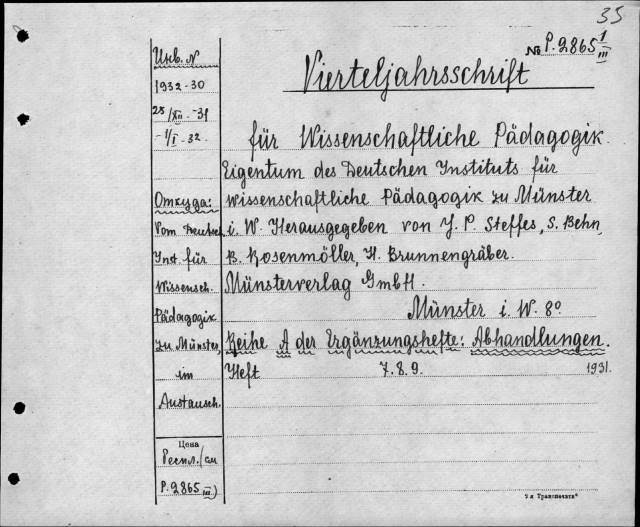 35
№ P.2865 1/III
Vierteljahrsschrift
für Wissenschaftliche Pädagogik.
Eigentum des Deutschen Instituts für
wissenschaftliche Pädagogik zu Münster
i. W. Herausgegeben von J. P. Steffes, S. Behn,
B. Rosenmöller, H. Brunnengräber.
Münsterverlag GmbH.
Münster i. W. 8º
Reihe A der Ergänzungshefte: Abhandlungen.
Heft 7.8.9. 1931.
Инв. N
1932-30
25/XII-31
-1/I-32.
Откуда:
Vom Deutsch.
Inst. für
Wissensch.
Pädagogik
zu Münster,
im
Austausch.
Цена
Респл./см
P.2865 III)
9 я Транспечать"